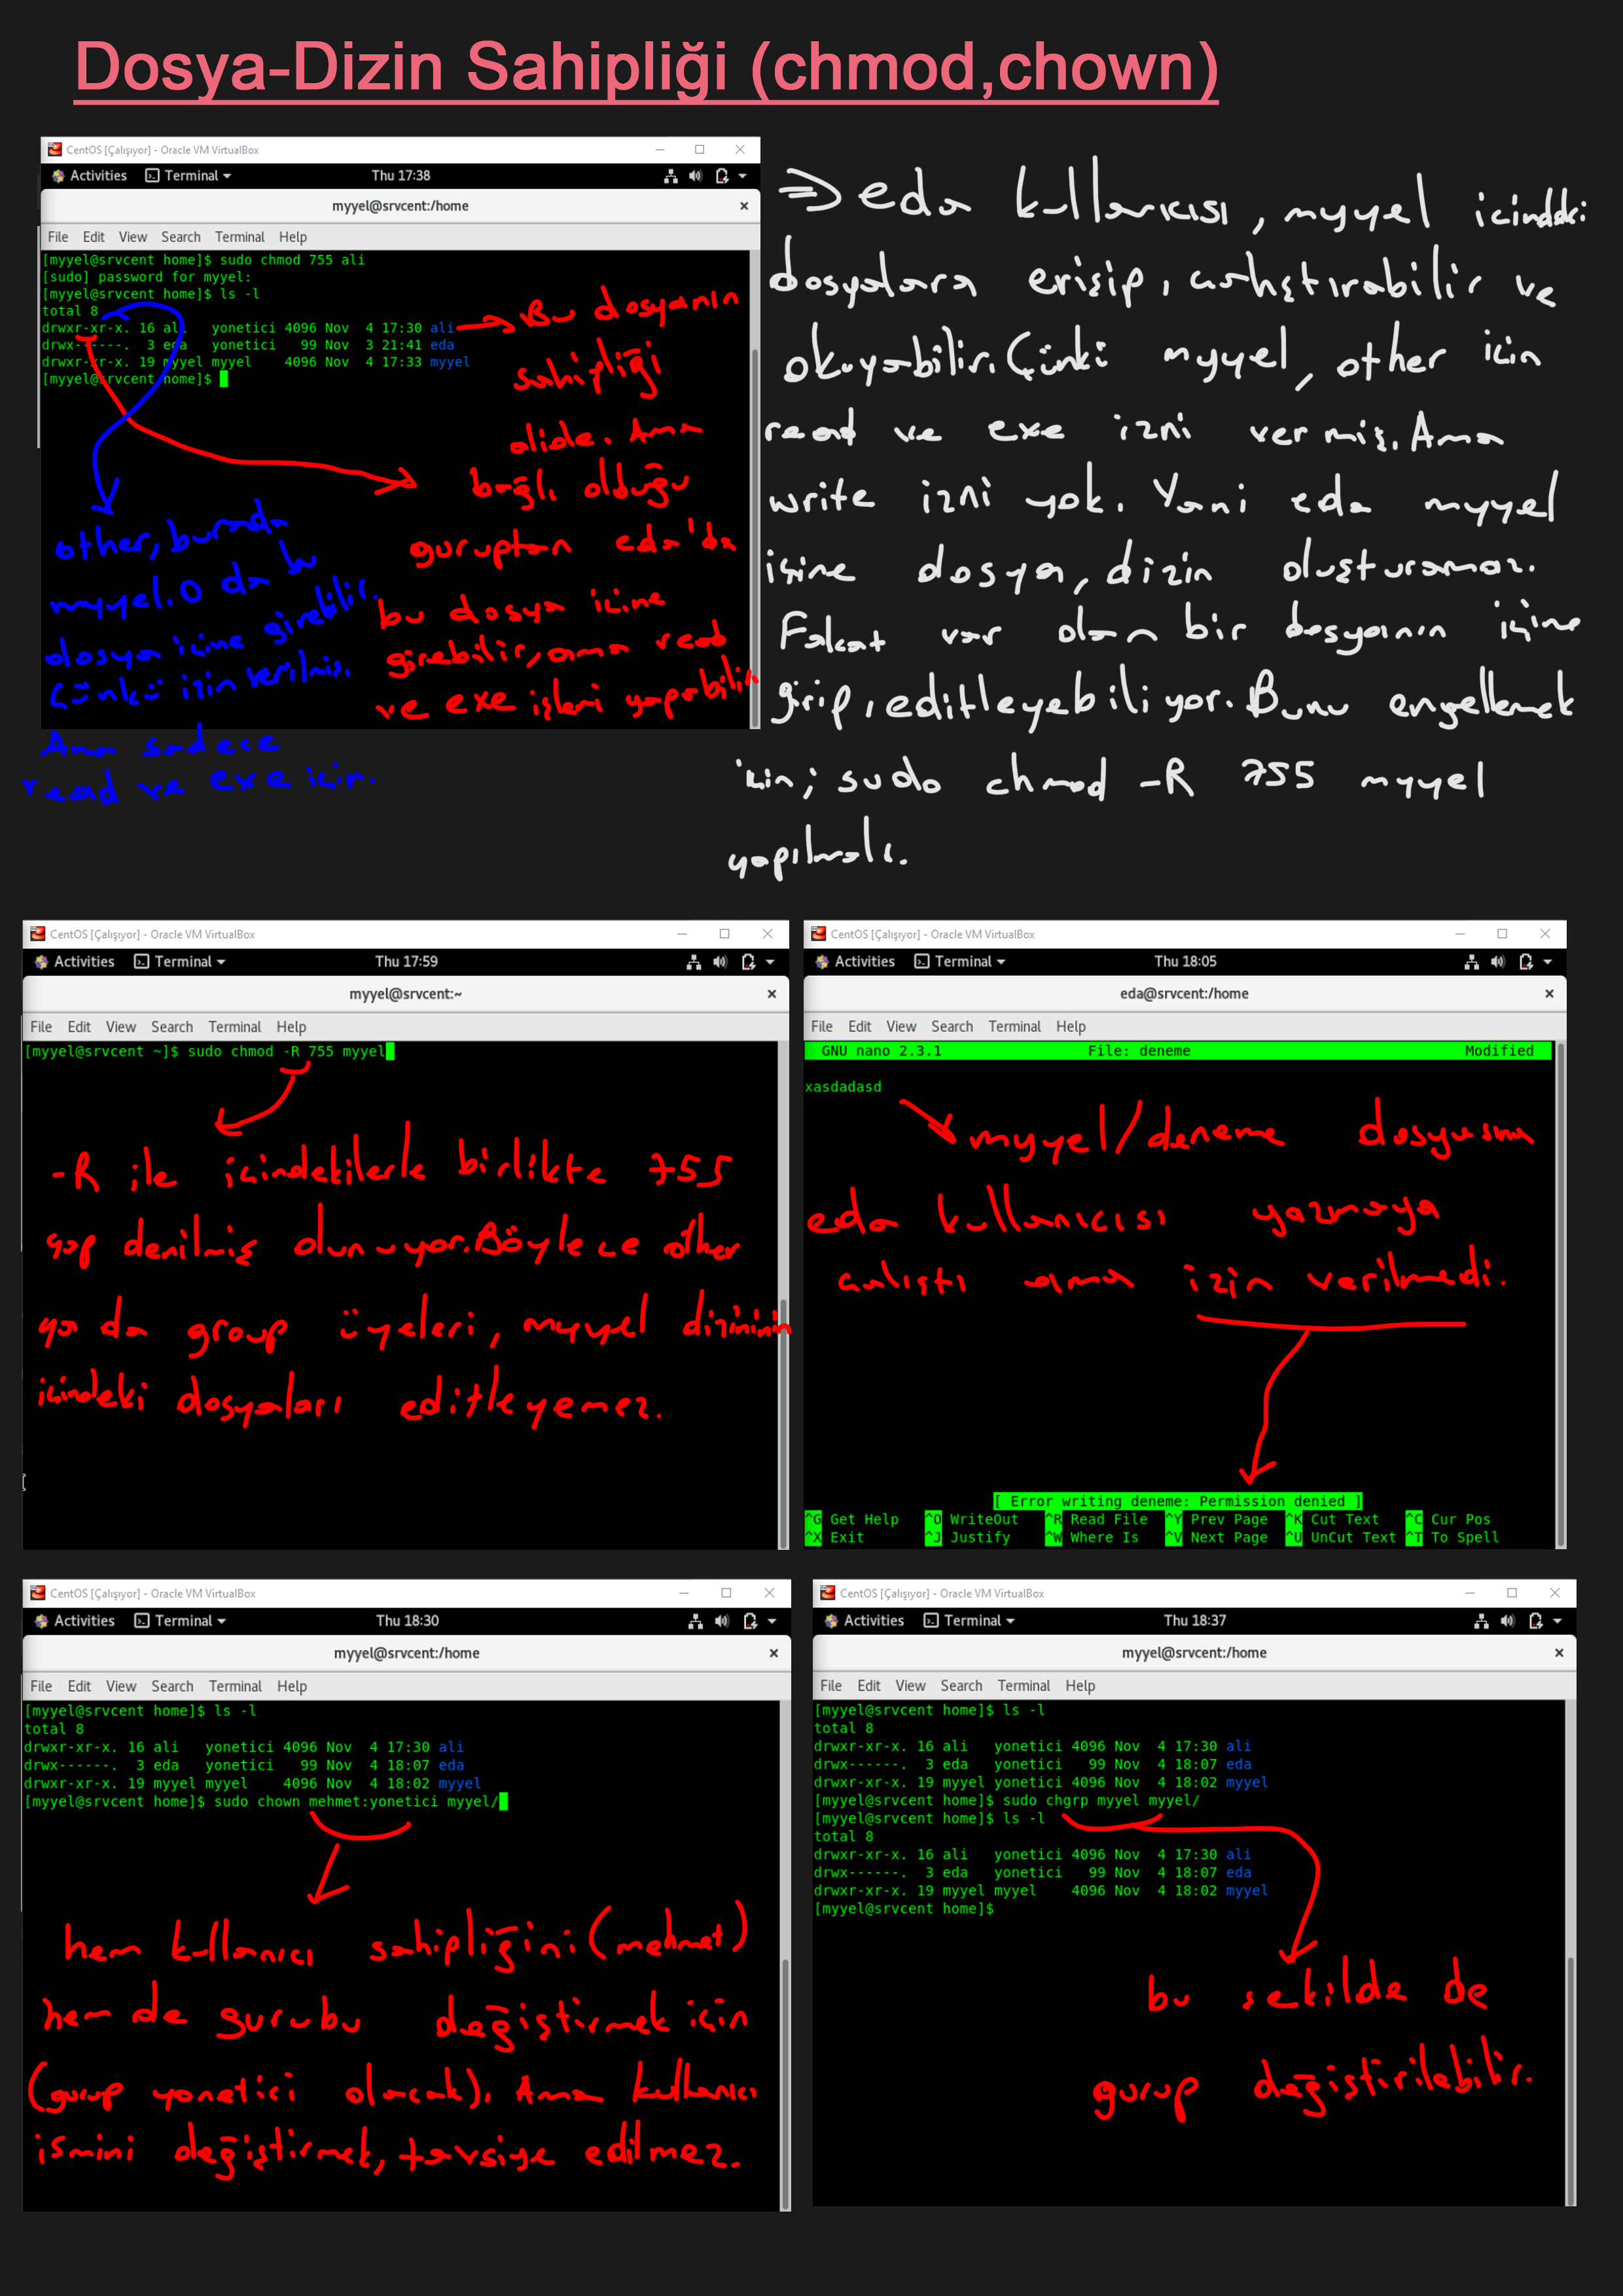 Dosya-Dizin Sahipliği (chmod,chown)
CentOS [Çalışıyor] - Oracle VM VirtualBox
Activities Terminal Thu 17:38
myyel@srvcent:/home
File Edit View Search Terminal Help
[myyel@srvcent home]$ sudo chmod 755 ali
[sudo] password for myyel:
[myyel@srvcent home]$ ls -l
total 8
drwxr-xr-x. 16 ali yonetici 4096 Nov 4 17:30 ali
drwx------. 3 eda yonetici 99 Nov 3 21:41 eda
drwxr-xr-x. 19 myyel myyel 4096 Nov 4 17:33 myyel
[myyel@srvcent home]$
Bu dosyanın
sahipliği
alide. Ama
bağlı olduğu
guruptan eda'da
bu dosya içine
girebilir, ama read
ve exe işleri yapabilir
other, burada
myyel. O da bu
dosya içine girebilir.
Çünkü izin verilmiş.
Ama sadece
read ve exe için.
=> eda kullanıcısı, myyel icindeki
dosyalara erişip, çalıştırabilir ve
okuyabilir. Çünkü myyel, other icin
read ve exe izni vermiş. Ama
write izni yok. Yani eda myyel
içine dosya, dizin oluşturamaz.
Fakat var olan bir dosyanın içine
girip, editleyebiliyor. Bunu engellemek
için; sudo chmod -R 755 myyel
yapılmalı.
CentOS [Çalışıyor] - Oracle VM VirtualBox
Activities Terminal Thu 17:59
myyel@srvcent:~
File Edit View Search Terminal Help
[myyel@srvcent ~]$ sudo chmod -R 755 myyel
-R ile içindekilerle birlikte 755
yap denilmiş olunuyor. Böylece other
ya da group üyeleri, myyel dizininin
içindeki dosyaları editleyemez.
CentOS [Çalışıyor] - Oracle VM VirtualBox
Activities Terminal Thu 18:05
eda@srvcent:/home
File Edit View Search Terminal Help
GNU nano 2.3.1 File: deneme Modified
xasdadasd
myyel/deneme dosyasına
eda kullanıcısı yazmaya
çalıştı ama izin verilmedi.
[ Error writing deneme: Permission denied ]
^G Get Help ^O WriteOut ^R Read File ^Y Prev Page ^K Cut Text ^C Cur Pos
^X Exit ^J Justify ^W Where Is ^V Next Page ^U UnCut Text ^T To Spell
CentOS [Çalışıyor] - Oracle VM VirtualBox
Activities Terminal Thu 18:30
myyel@srvcent:/home
File Edit View Search Terminal Help
[myyel@srvcent home]$ ls -l
total 8
drwxr-xr-x. 16 ali yonetici 4096 Nov 4 17:30 ali
drwx------. 3 eda yonetici 99 Nov 4 18:07 eda
drwxr-xr-x. 19 myyel myyel 4096 Nov 4 18:02 myyel
[myyel@srvcent home]$ sudo chown mehmet:yonetici myyel/
hem kullanıcı sahipliğini (mehmet)
hem de gurubu değiştirmek için
(gurup yonetici olacak). Ama kullanıcı
ismini değiştirmek, tavsiye edilmez.
CentOS [Çalışıyor] - Oracle VM VirtualBox
Activities Terminal Thu 18:37
myyel@srvcent:/home
File Edit View Search Terminal Help
[myyel@srvcent home]$ ls -l
total 8
drwxr-xr-x. 16 ali yonetici 4096 Nov 4 17:30 ali
drwx------. 3 eda yonetici 99 Nov 4 18:07 eda
drwxr-xr-x. 19 myyel yonetici 4096 Nov 4 18:02 myyel
[myyel@srvcent home]$ sudo chgrp myyel myyel/
[myyel@srvcent home]$ ls -l
total 8
drwxr-xr-x. 16 ali yonetici 4096 Nov 4 17:30 ali
drwx------. 3 eda yonetici 99 Nov 4 18:07 eda
drwxr-xr-x. 19 myyel myyel 4096 Nov 4 18:02 myyel
[myyel@srvcent home]$
bu sekilde de
gurup değiştirilebilir.